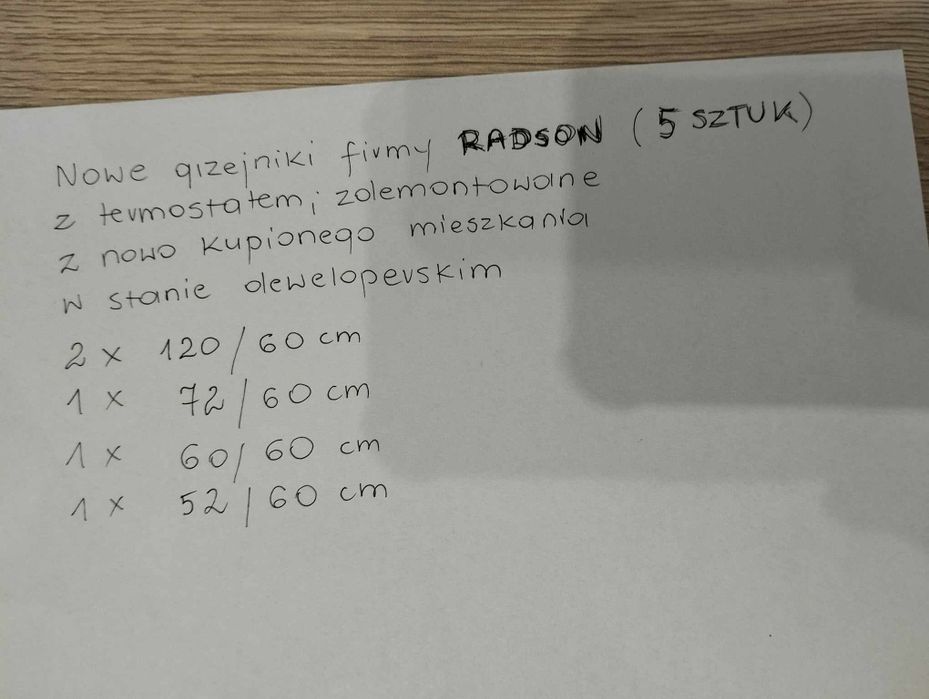 Nowe grzejniki firmy RADSON (5 SZTUK)
z termostatem, zdemontowane
z nowo kupionego mieszkania
w stanie deweloperskim
2 x 120/60 cm
1 x 72/60 cm
1 x 60/60 cm
1 x 52/60 cm